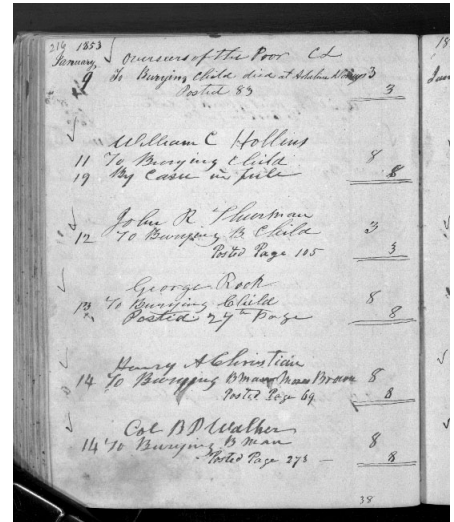 214 1853 Overseers of the Poor Cd
January,
9 To Burying Child died at 3
Posted 83 3
William C Hollins
11 To Burying Child 8
19 By Cash in full 8
John R Thurman
12 To Burying B Child 3
Posted Page 105 3
George Rock
13 To Burying Child 8
Posted 27th Page 8
Henry A Christian
14 To Burying B man Brown 8
Posted Page 69 8
Col B D Walker
14 To Burying B man 8
Posted Page 273 8
38
18